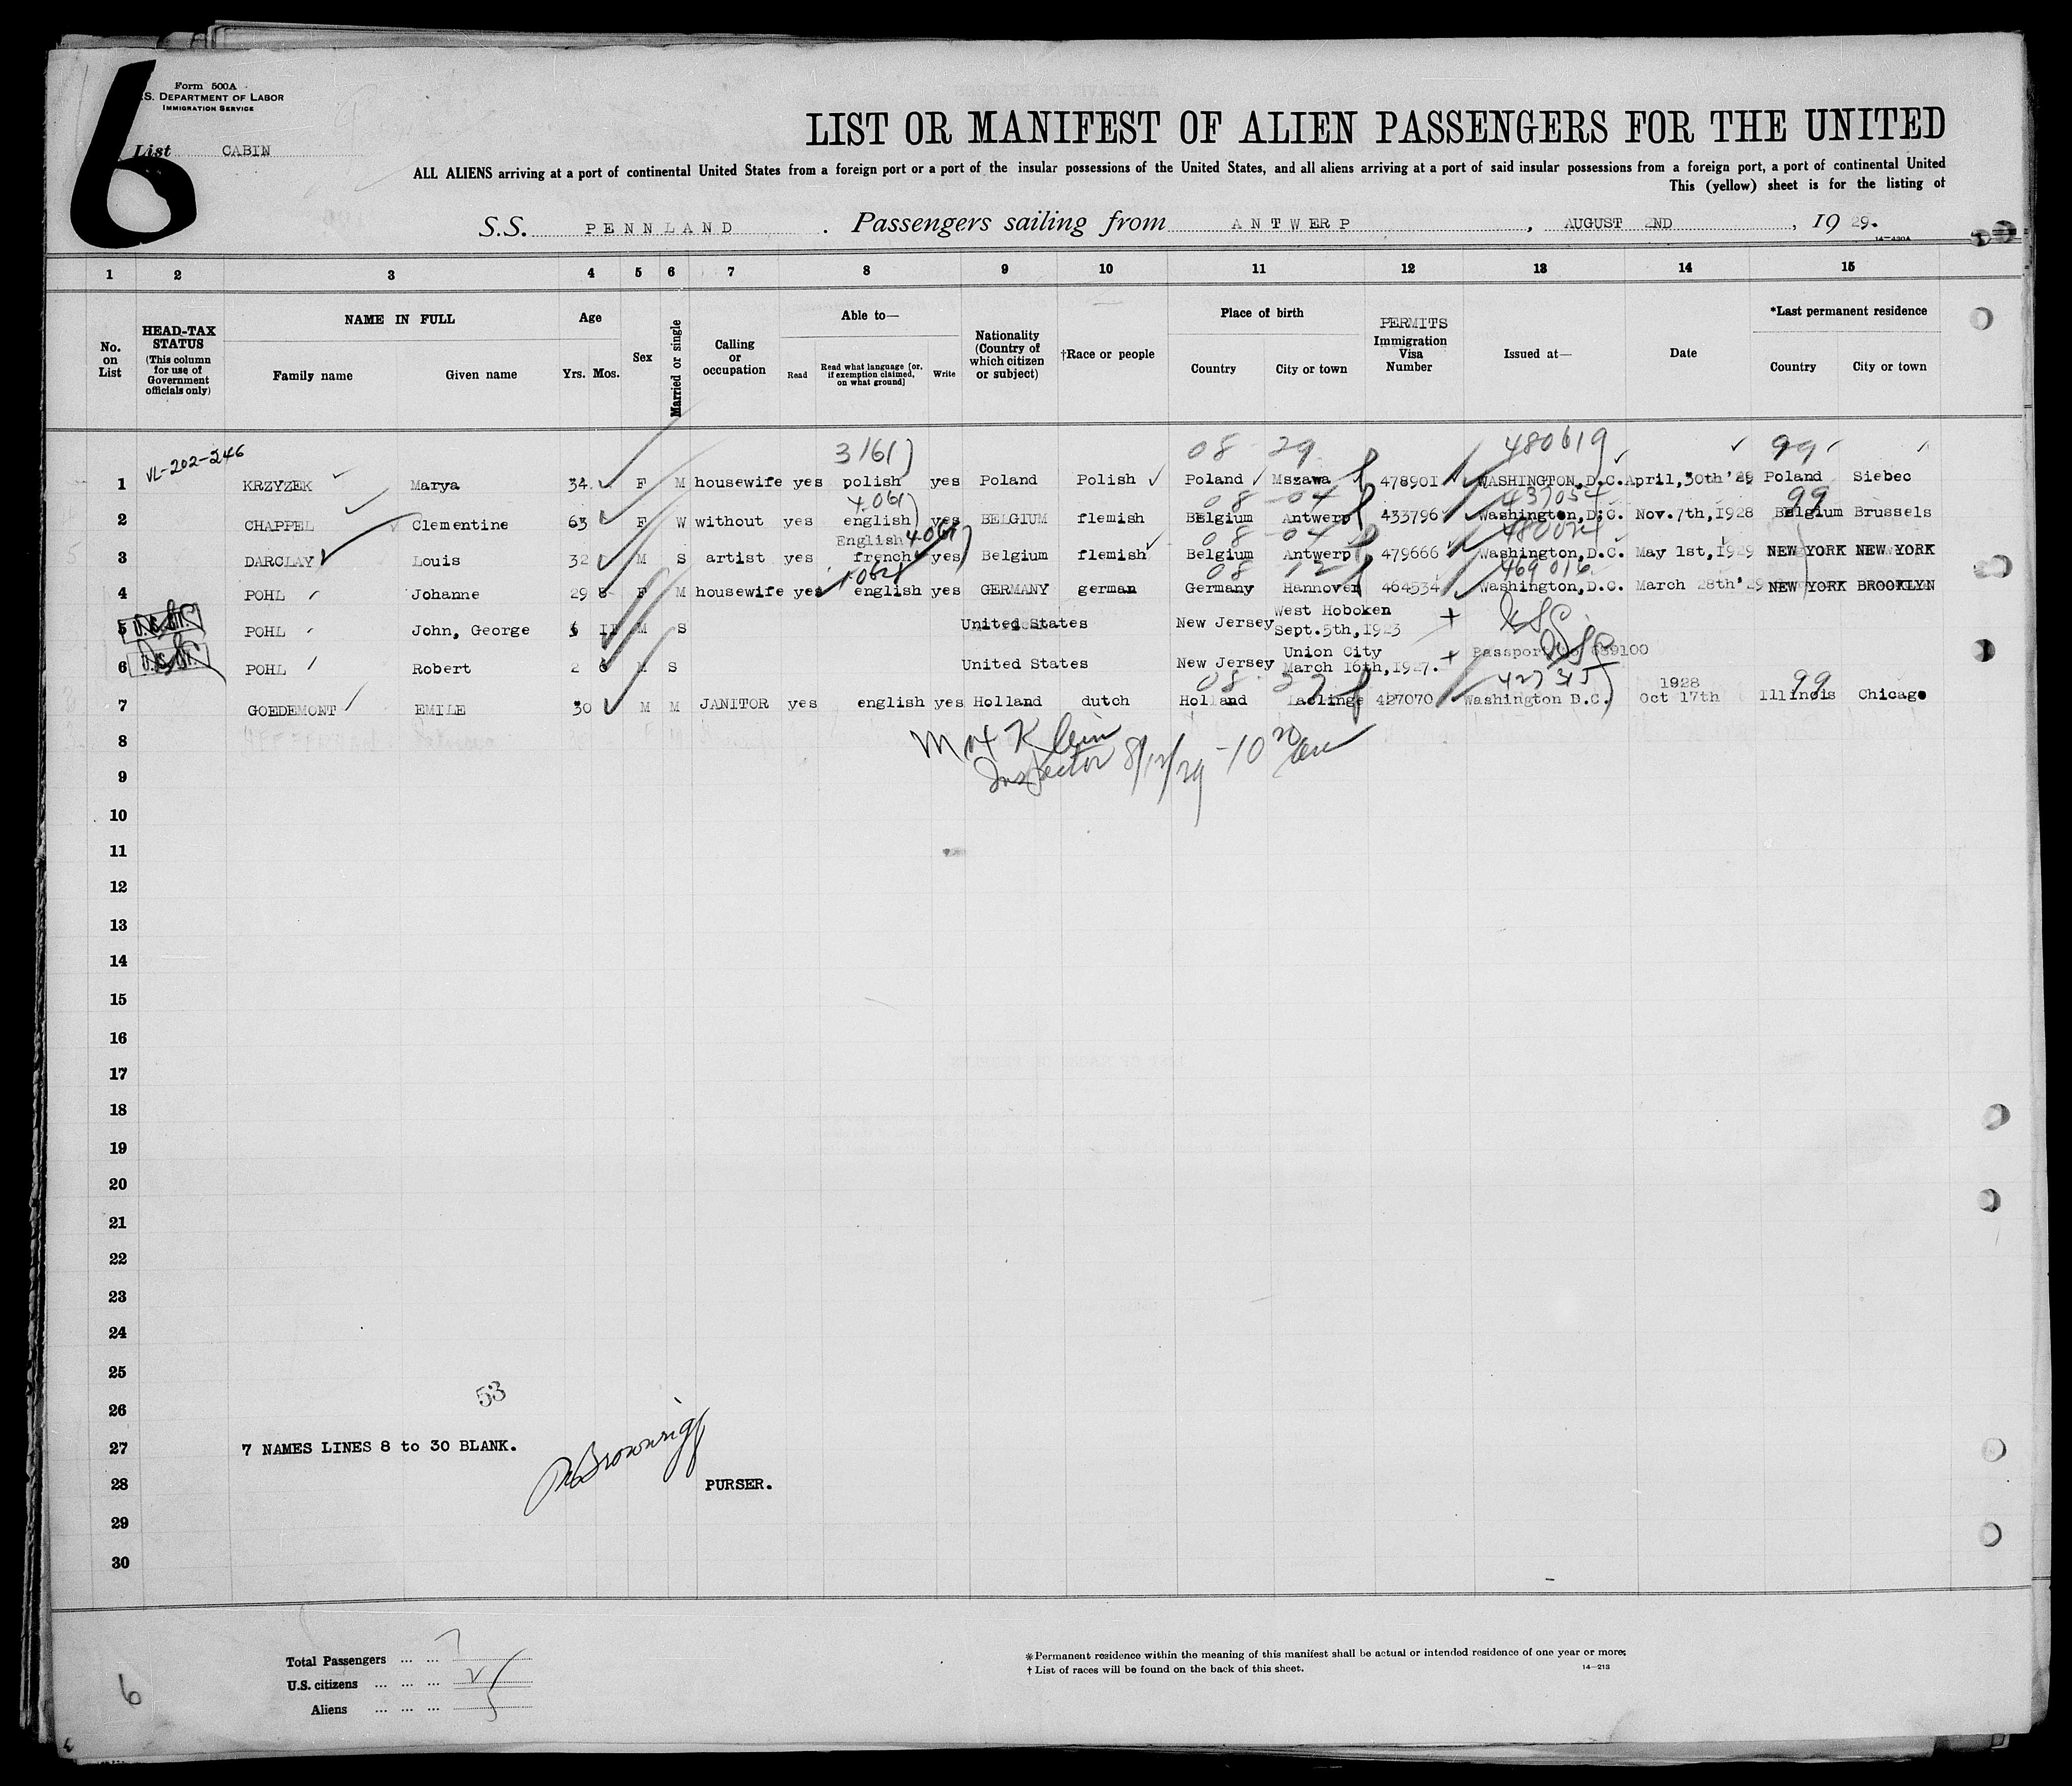 6
Form 500A
U.S. DEPARTMENT OF LABOR
IMMIGRATION SERVICE
List CABIN
LIST OR MANIFEST OF ALIEN PASSENGERS FOR THE UNITED
ALL ALIENS arriving at a port of continental United States from a foreign port or a port of the insular possessions of the United States, and all aliens arriving at a port of said insular possessions from a foreign port, a port of continental United
This (yellow) sheet is for the listing of
S.S. PENNLAND . Passengers sailing from ANTWERP , AUGUST 2ND , 19 29.
14-430A
1 2 3 4 5 6 7 8 9 10 11 12 13 14 15
No. on List
HEAD-TAX STATUS (This column for use of Government officials only)
NAME IN FULL Family name Given name
Age Yrs. Mos.
Sex
Married or single
Calling or occupation
Able to— Read Read what language [or, if exemption claimed, on what ground] Write
Nationality (Country of which citizen or subject)
†Race or people
Place of birth Country City or town
PERMITS Immigration Visa Number
Issued at—
Date
*Last permanent residence Country City or town
VL-202-246 3161) 08 29 480619 99
1 KRZYZEK Marya 34 F M housewife yes polish yes Poland Polish Poland Mszawa 478901 WASHINGTON,D.C. April,30th'29 Poland Siebec
4061) 08 - 04 437054 99
2 CHAPPEL Clementine 63 F W without yes english yes BELGIUM flemish Belgium Antwerp 433796 Washington,D.C. Nov.7th,1928 Belgium Brussels
English 4061) 08 - 04 480024
3 DARCLAY Louis 32 M S artist yes french yes Belgium flemish Belgium Antwerp 479666 Washington,D.C. May 1st,1929 NEW YORK NEW YORK
1062 08 12 469016
4 POHL Johanne 29 8 F M housewife yes english yes GERMANY german Germany Hannover 464534 Washington,D.C. March 28th'29 NEW YORK BROOKLYN
U.S. CIT. West Hoboken
5 POHL John, George 5 II M S United States New Jersey Sept.5th,1923 + USC
U.S. CIT. Union City Passport No 689100
6 POHL Robert 2 6 M S United States New Jersey March 16th,1927. + USC
08 37 427315 1928 99
7 GOEDEMONT EMILE 30 M M JANITOR yes english yes Holland dutch Holland 427070 Washington D.C. Oct 17th Illinois Chicago
8
Max Klein
Inspector 8/12/29 - 10 20 am
9
10
11
12
13
14
15
16
17
18
19
20
21
22
23
24
25
53
26
27 7 NAMES LINES 8 to 30 BLANK.
28 PURSER.
29
30
Total Passengers ... ... 7
U.S. citizens ... ... ... 2
Aliens ... ... ... 5
* Permanent residence within the meaning of this manifest shall be actual or intended residence of one year or more.
† List of races will be found on the back of this sheet.
14-213
6